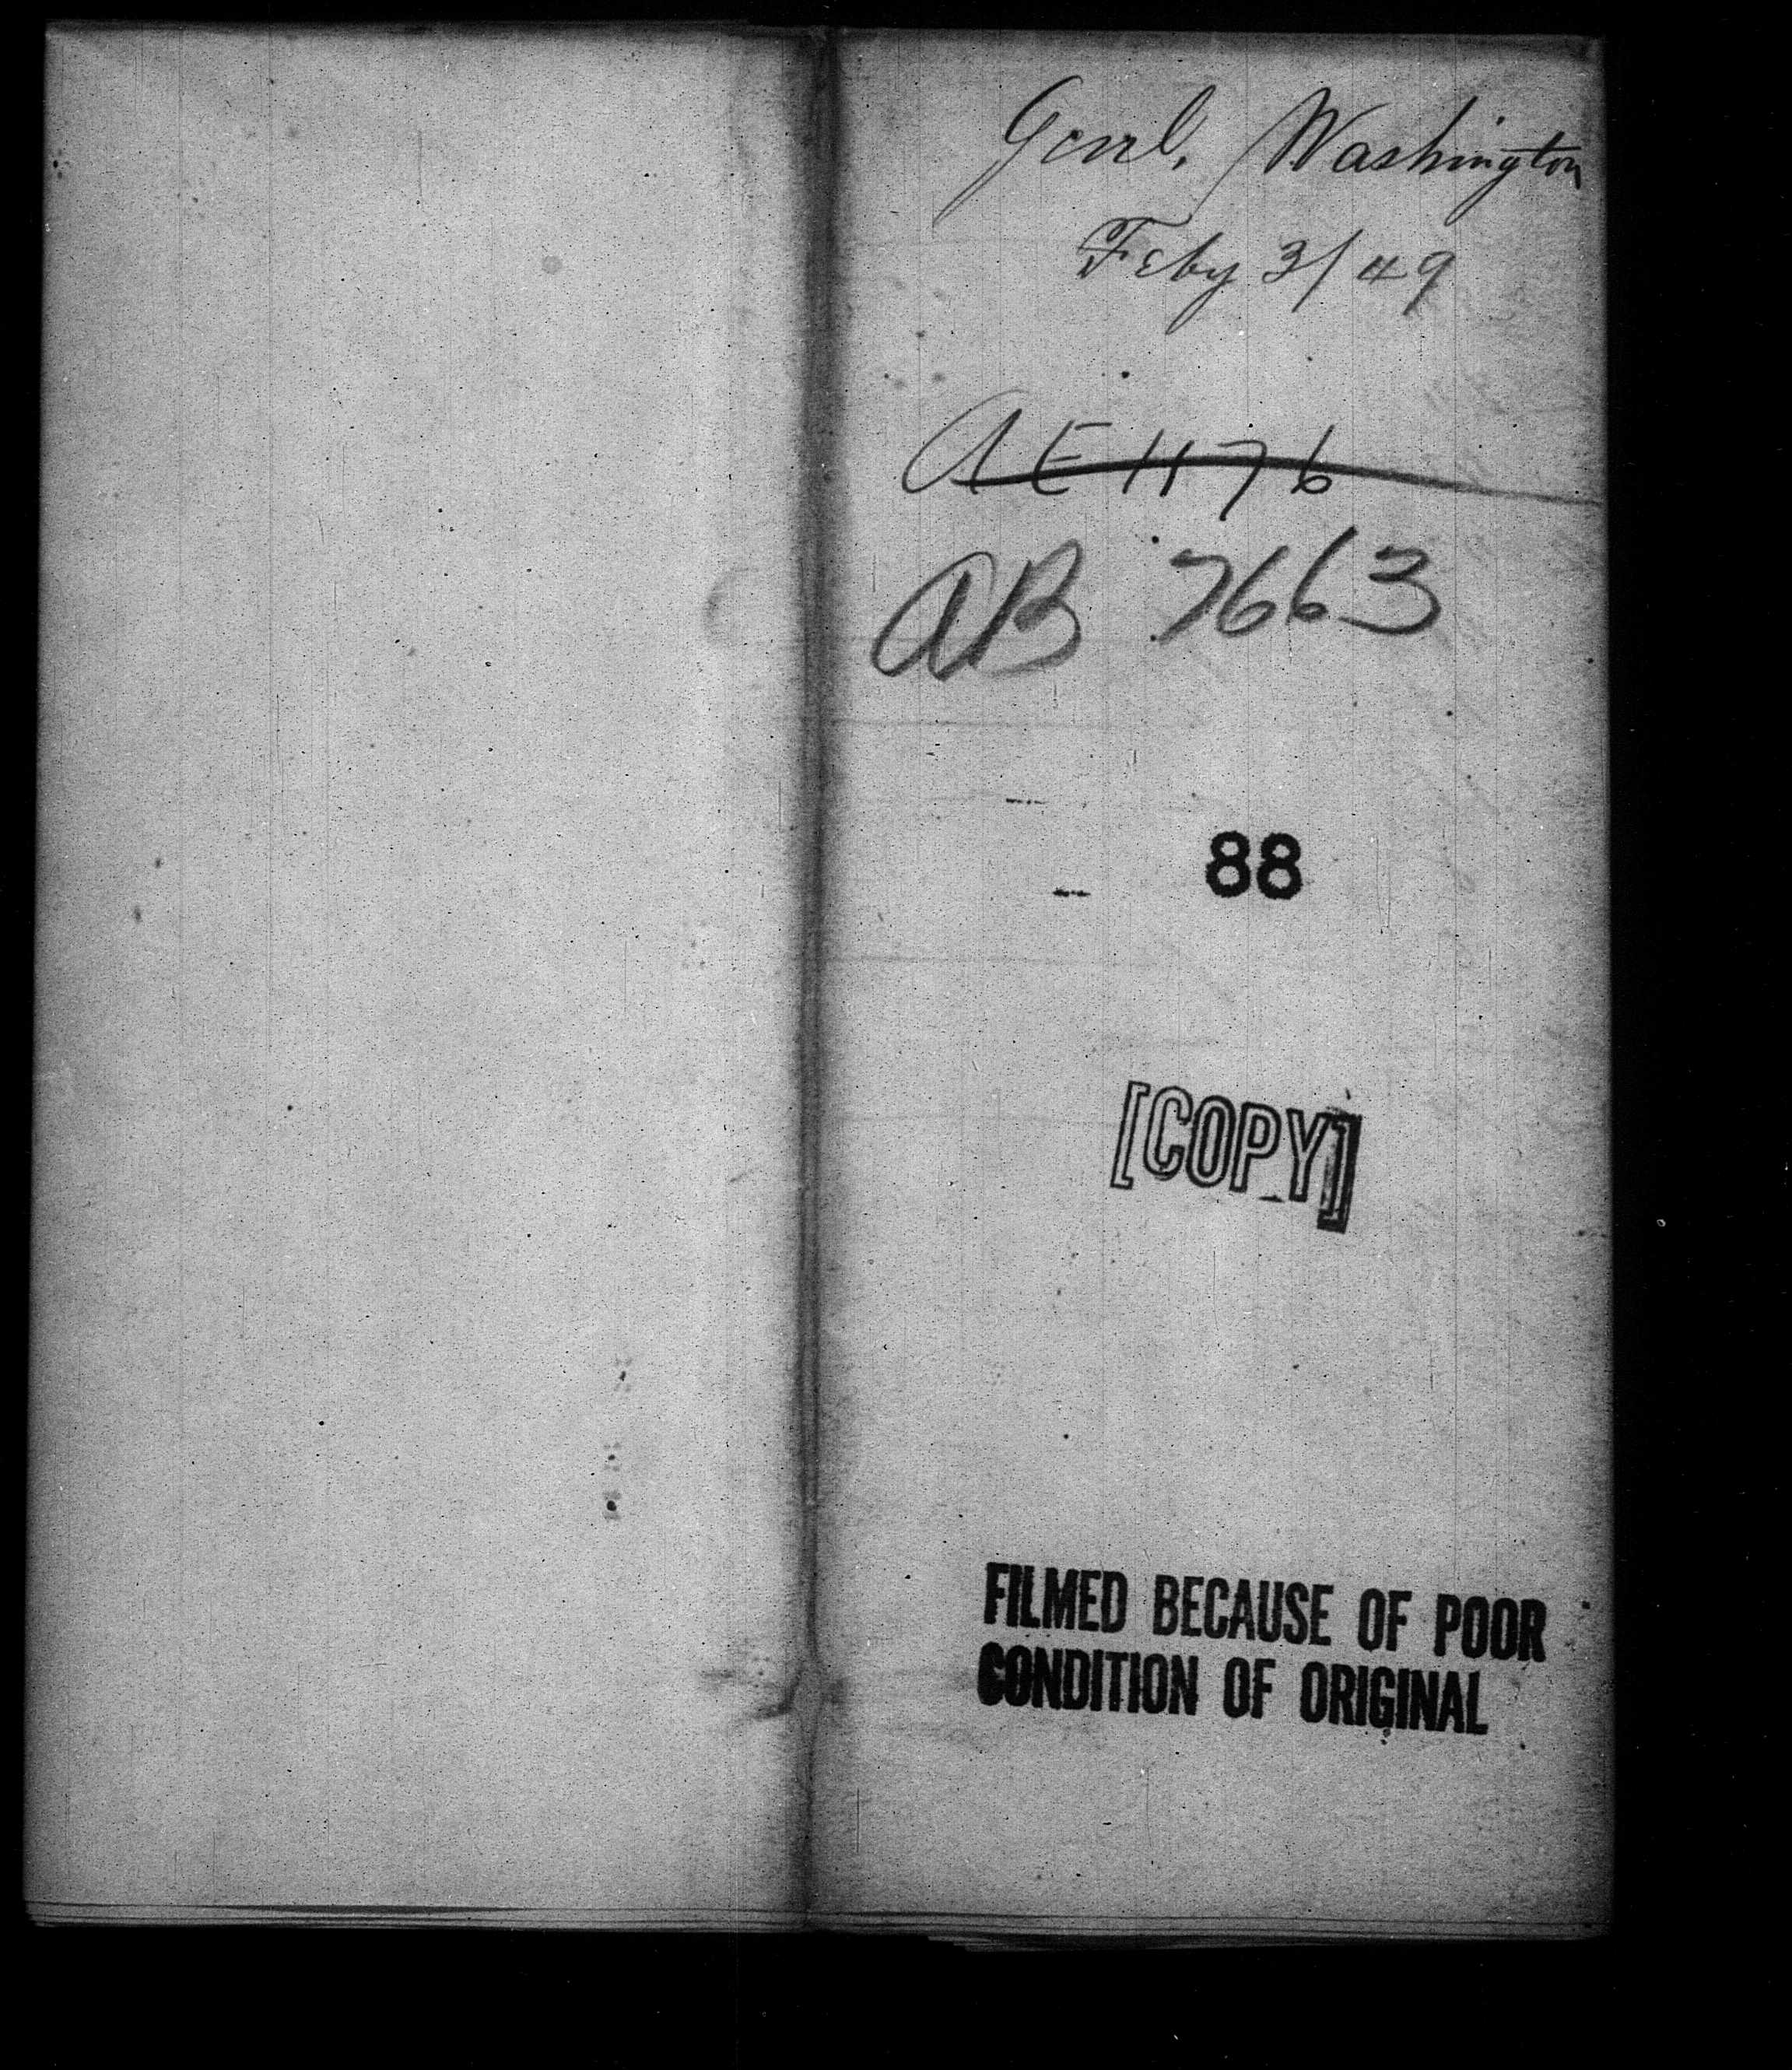 Genrl. Washington
Feby 3/49
AE 1176
AB 7663
88
[COPY]
FILMED BECAUSE OF POOR
CONDITION OF ORIGINAL